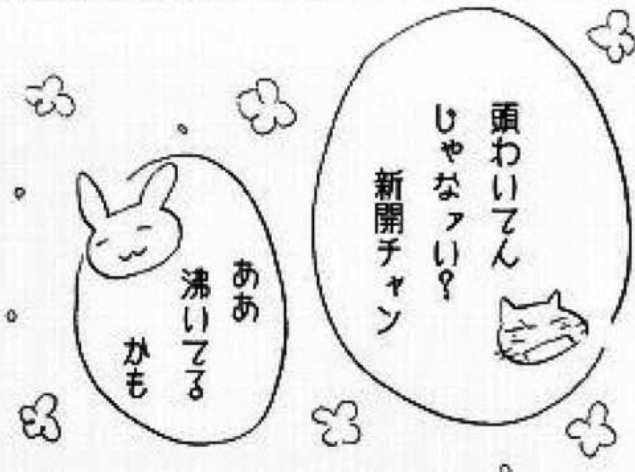 頭わいてん
じゃなァい？
新開チャン
ああ
沸いてる
かも